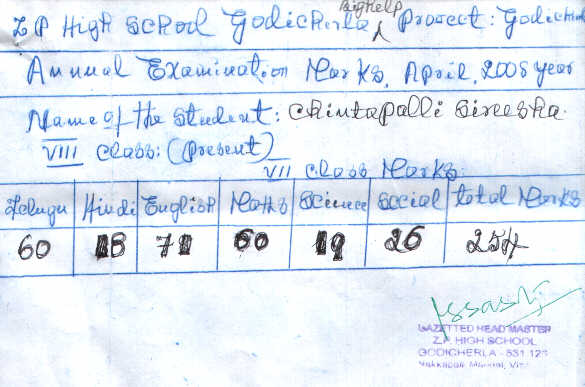 Z P High School Godicherla, Bighelp Project: Godicherla
Annual Examination Marks, April, 2008 year
Name of the student: Chintapalli Sireesha.
VIII class: (Present)
VII class Marks
Telugu Hindi English Maths Science Social total Marks
60 18 71 60 19 26 254
GAZETTED HEAD MASTER
Z.P. HIGH SCHOOL
GODICHERLA - 531 126